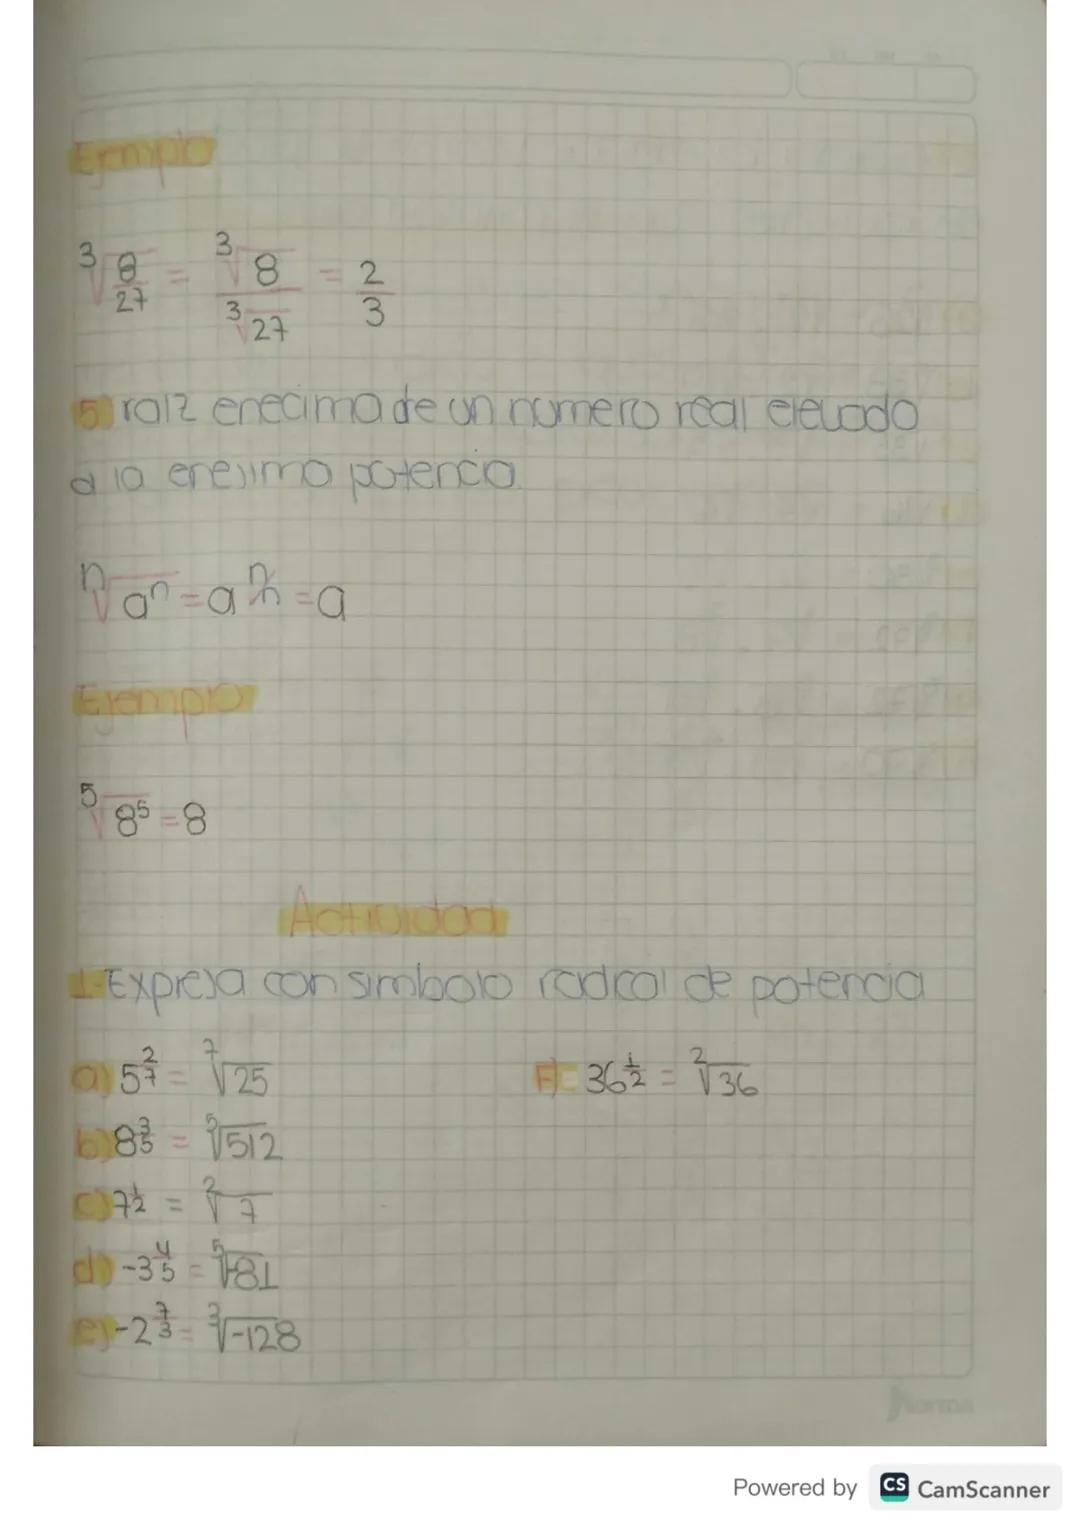 Ejemplo
∛(8/27) = ∛8/∛27 = 2/3
5) raiz enecima de un numero real elevado
a la enesima potencia.
ⁿ√aⁿ = a^(n/n) = a
Ejemplo
⁵√8⁵ = 8
Actividad
1- Expresa con simbolo radical de potencia
a) 5^(2/7) = ⁷√25
F) 36^(1/2) = ²√36
b) 8^(3/5) = ⁵√512
c) 7^(1/2) = ²√7
d) -3^(4/5) = ⁵√-81
e) -2^(7/3) = ³√-128
Norma
Powered by CS CamScanner